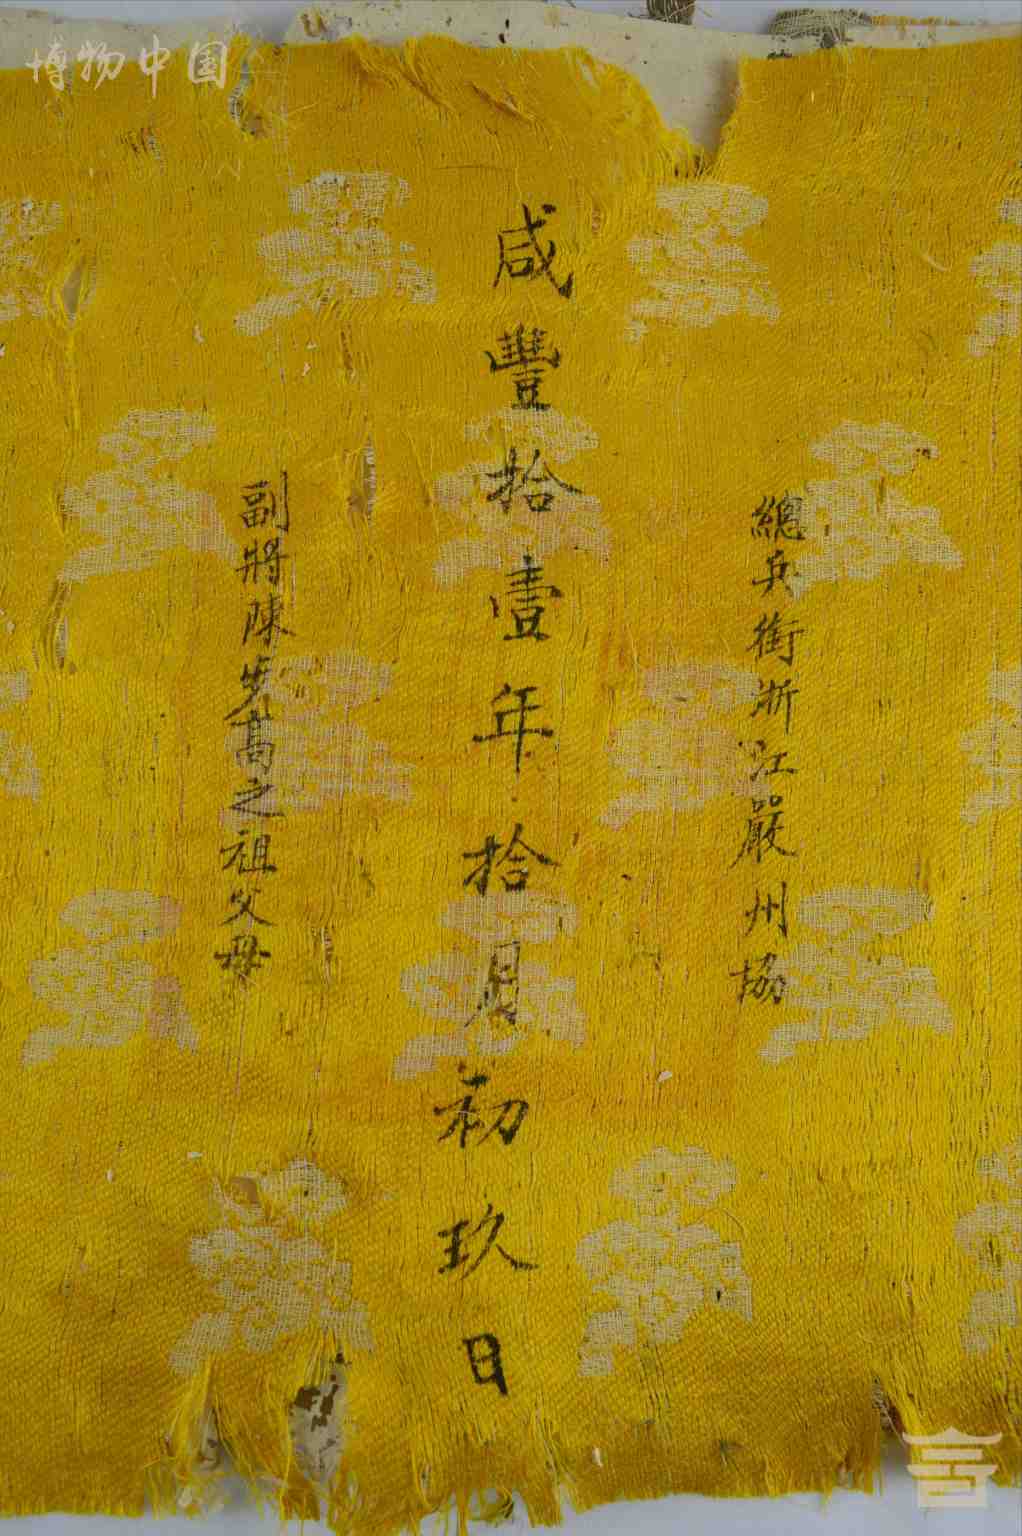 總兵銜浙江嚴州協
咸豐拾壹年拾月初玖日
副將陳步高之祖父母
博物中国